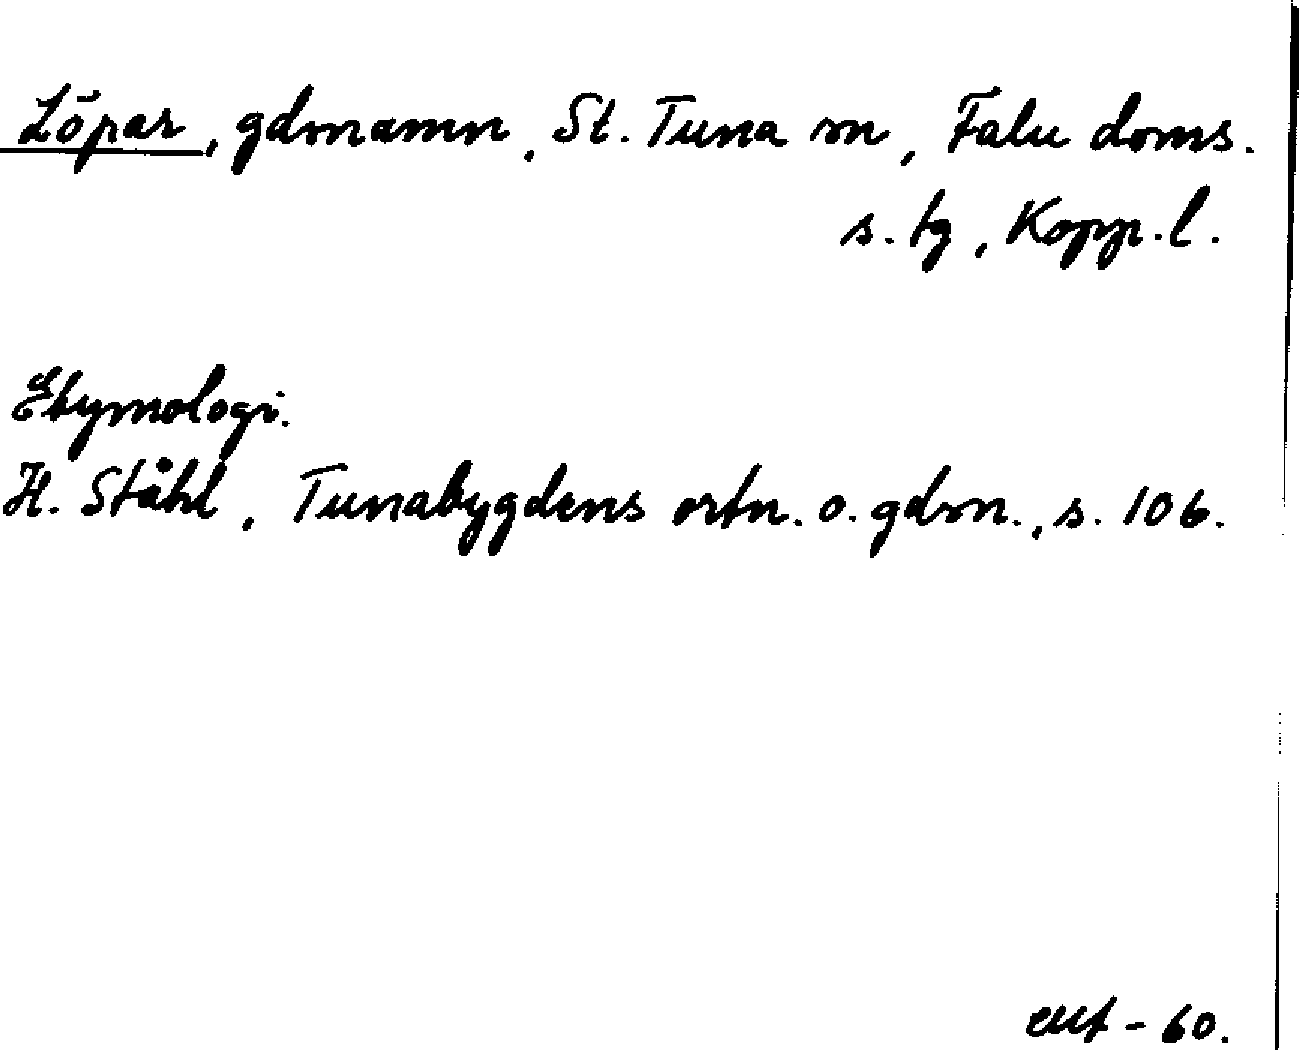 Löpar, gdnnamn, St. Tuna sn, Falu doms.
s. tg, Kopp. l.
Etymologi.
H. Ståhl, Tunabygdens ortn. o. gdsn., s. 106.
- 60.